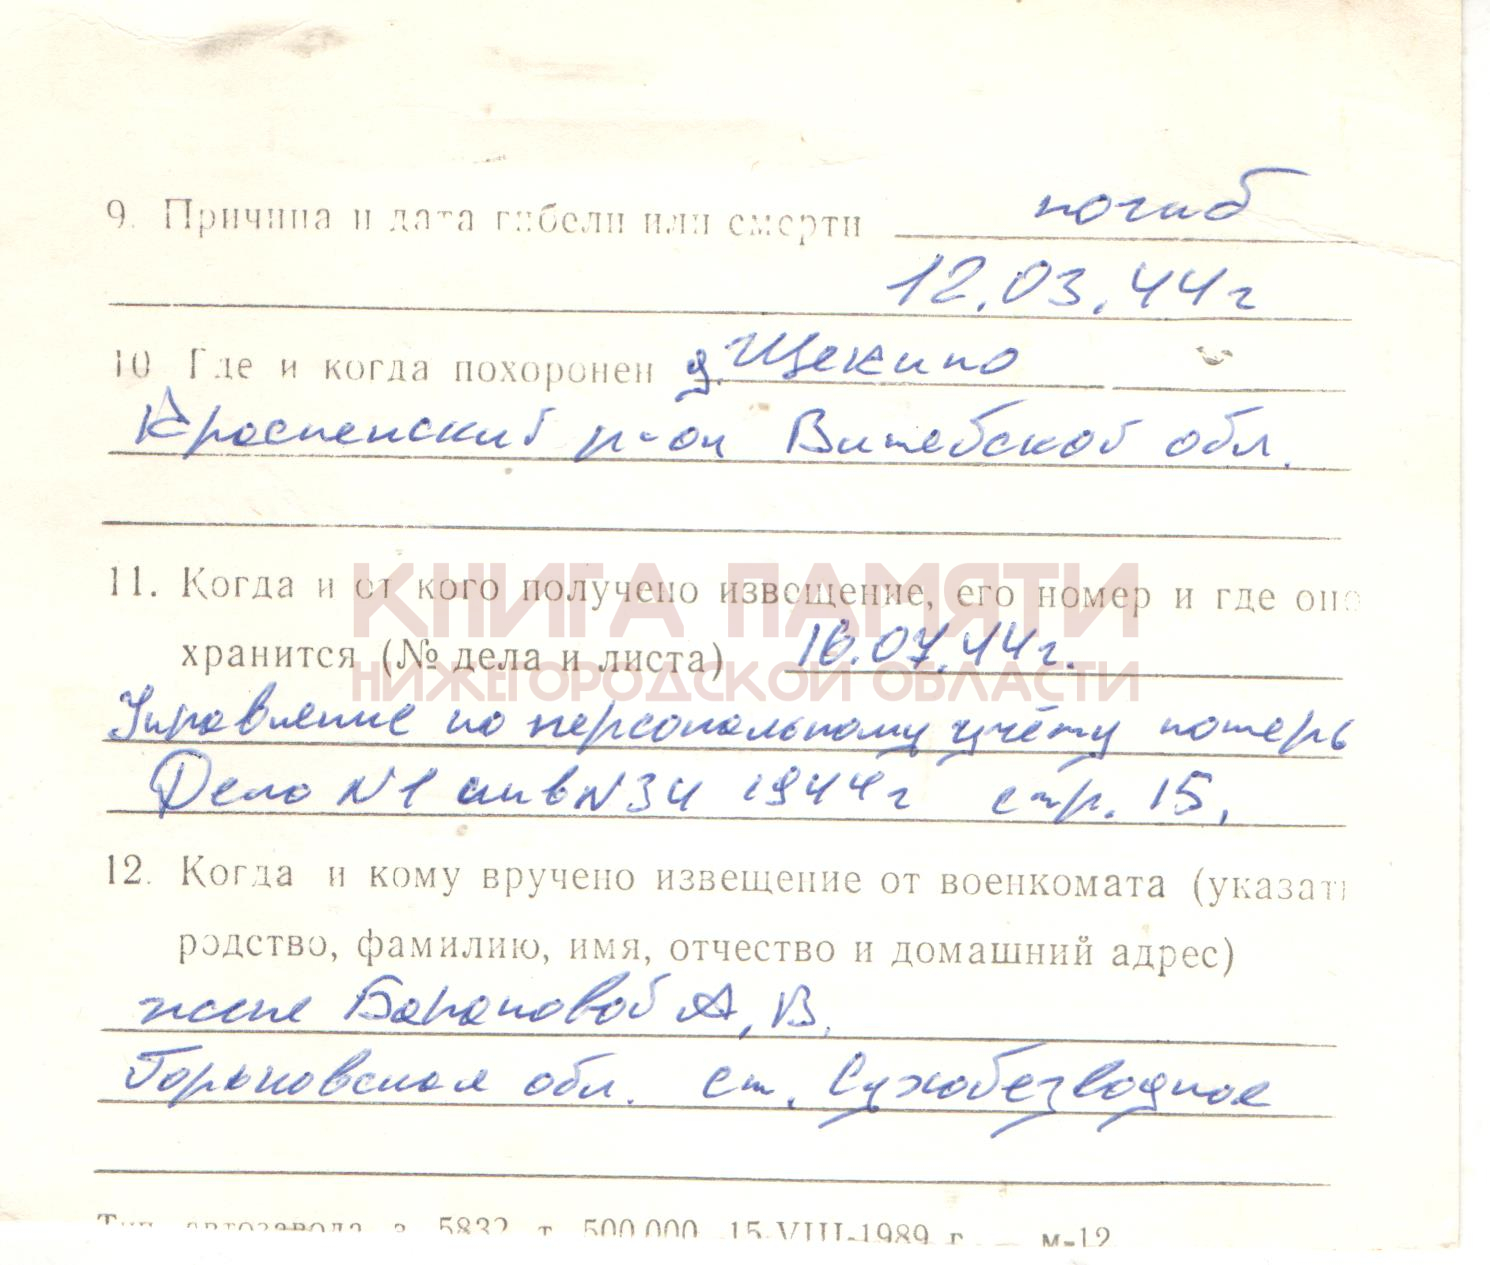 9. Причина и дата гибели или смерти погиб
12.03.44г
10 Где и когда похоронен д. Щекино
Красненский р-он Витебской обл.
КНИГА ПАМЯТИ
НИЖЕГОРОДСКОЙ ОБЛАСТИ
11. Когда и от кого получено извещение, его номер и где оно
хранится (№ дела и листа) 16.07.44г.
Управление по персональному учёту потерь
Дело N1 инв N34 1944г стр. 15.
12. Когда и кому вручено извещение от военкомата (указать
родство, фамилию, имя, отчество и домашний адрес)
жене Барановой А. В.
Горьковская обл. ст. Сухобезводное
Тип. автозавода з. 5832 т. 500.000 15-VIII-1989 г. — м-12